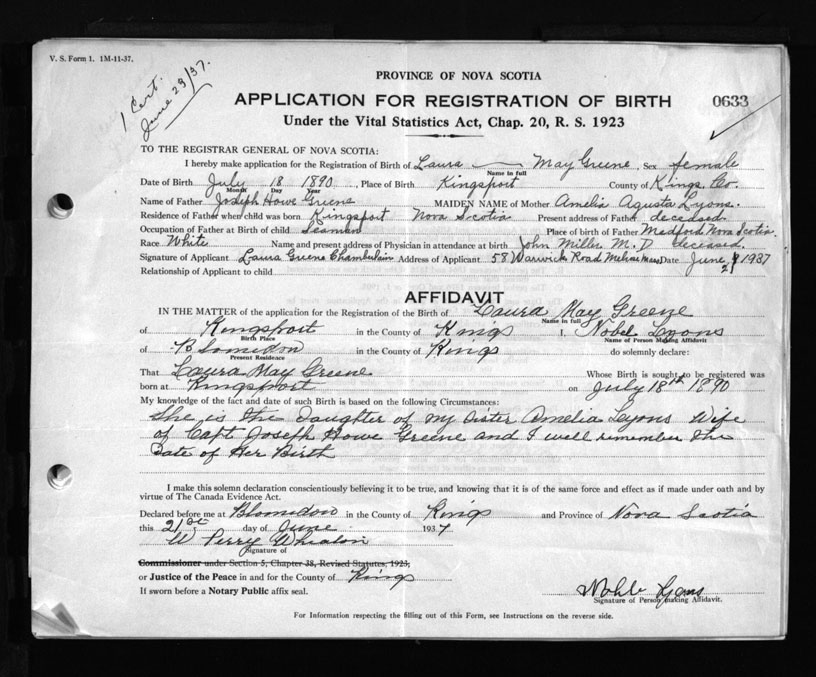 V. S. Form 1. 1M-11-37.
1 Cert.
June 23/37.
PROVINCE OF NOVA SCOTIA
APPLICATION FOR REGISTRATION OF BIRTH 0633
Under the Vital Statistics Act, Chap. 20, R. S. 1923
TO THE REGISTRAR GENERAL OF NOVA SCOTIA:
I hereby make application for the Registration of Birth of Laura May Greene, Sex female
Name in full
Date of Birth July 18 1890, Place of Birth Kingsport County of Kings Co.
Month Day Year
Name of Father Joseph Howe Greene MAIDEN NAME of Mother Amelia Agusta Lyons.
Residence of Father when child was born Kingsport Nova Scotia Present address of Father deceased
Occupation of Father at Birth of child Seaman Place of birth of Father Medford Nova Scotia.
Race White Name and present address of Physician in attendance at birth John Miller M. D deceased.
Signature of Applicant Laura Greene Chamberlain Address of Applicant 58 Warwick Road Melrose Mass Date June 1937
Relationship of Applicant to child
AFFIDAVIT
IN THE MATTER of the application for the Registration of the Birth of Laura May Greene
Name in full
of Kingsport in the County of Kings I, Nobel Lyons
Birth Place Name of Person Making Affidavit
of Blomidon in the County of Kings do solemnly declare:
Present Residence
That Laura May Greene Whose Birth is sought to be registered was
born at Kingsport on July 18th 1890
My knowledge of the fact and date of such Birth is based on the following Circumstances:
She is the Daughter of my Sister Amelia Lyons Wife
of Capt Joseph Howe Greene and I well remember the
Date of Her Birth
I make this solemn declaration conscientiously believing it to be true, and knowing that it is of the same force and effect as if made under oath and by
virtue of The Canada Evidence Act.
Declared before me at Blomidon in the County of Kings and Province of Nova Scotia
this 21st day of June 1937
W Perry
Signature of
Commissioner under Section 5, Chapter 38, Revised Statutes, 1923,
or Justice of the Peace in and for the County of Kings
If sworn before a Notary Public affix seal.
Lyons
Signature of Person making Affidavit.
For Information respecting the filling out of this Form, see Instructions on the reverse side.